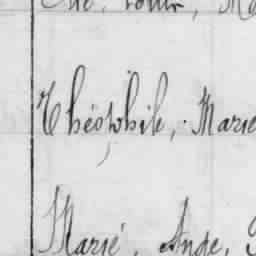 Théophile, Marie
Marie, Ange,